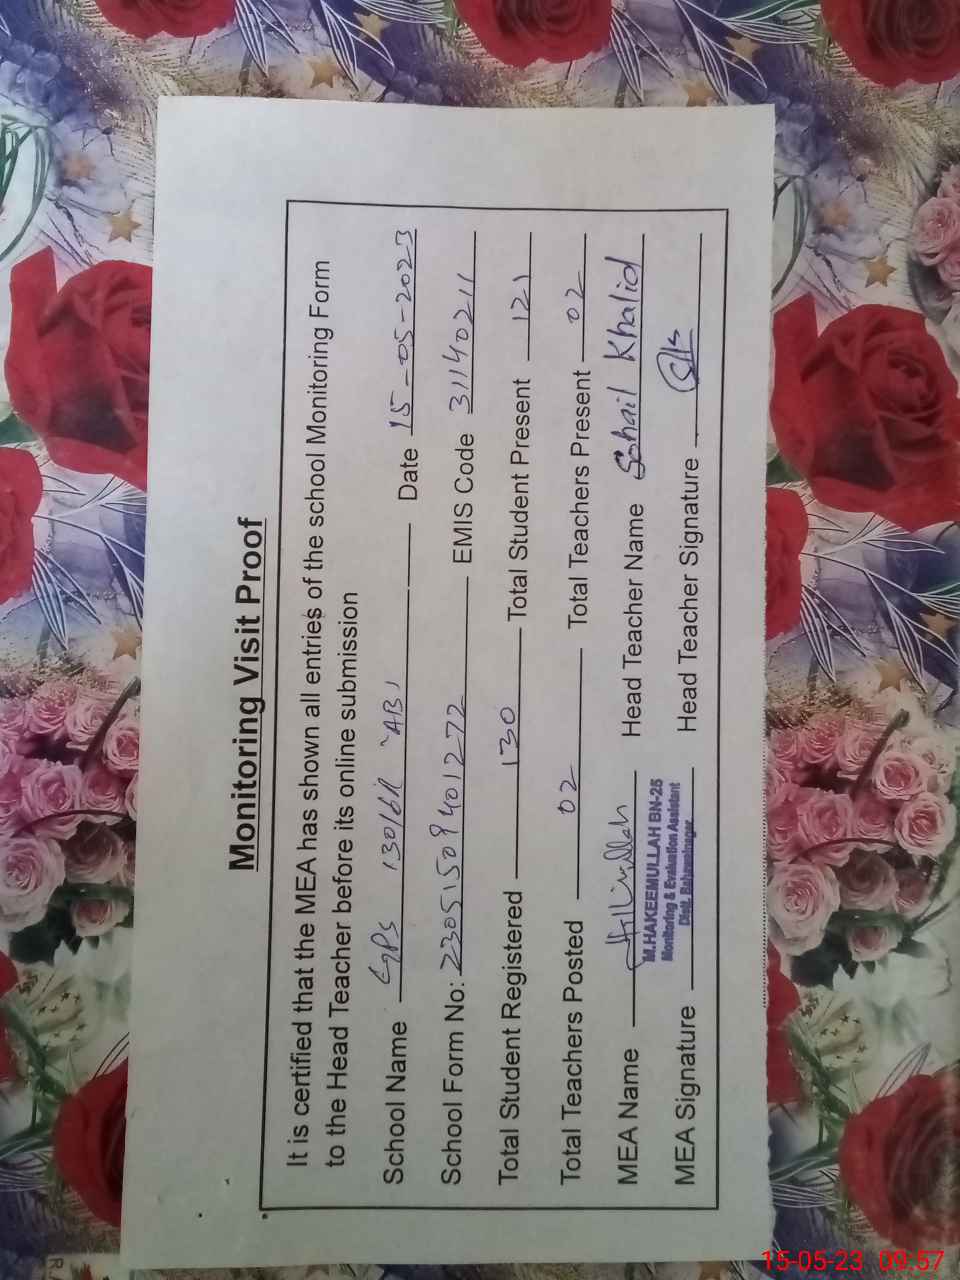 Monitoring Visit Proof
It is certified that the MEA has shown all entries of the school Monitoring Form
to the Head Teacher before its online submission
School Name GPS 130/6R "AB" Date 15-05-2023
School Form No: 23051509401272 EMIS Code 31140211
Total Student Registered 130 Total Student Present 121
Total Teachers Posted 02 Total Teachers Present 02
MEA Name Head Teacher Name Sohail Khalid
M.HAKEEMULLAH BN-25
Monitoring & Evaluation Assistant
Distt. Bahawalnagar
MEA Signature Head Teacher Signature
15-05-23 09:57